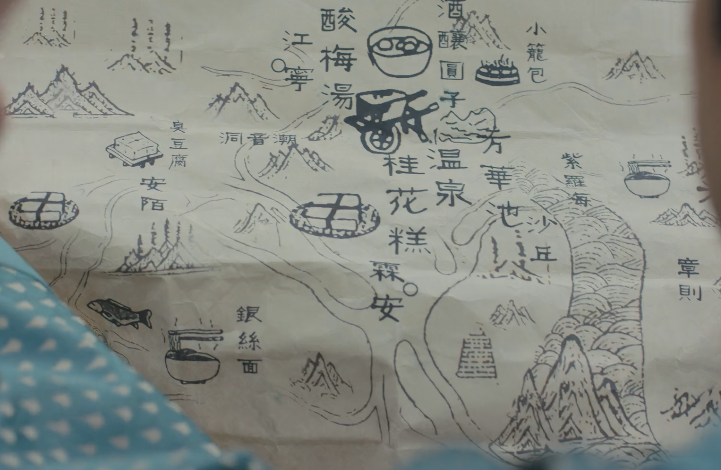 酸梅湯
酒釀圓子
小籠包
江寧
臭豆腐
洞音潮
芳華池
紫羅海
溫泉
桂花糕
安陌
沙丘
霖安
章則
銀絲面